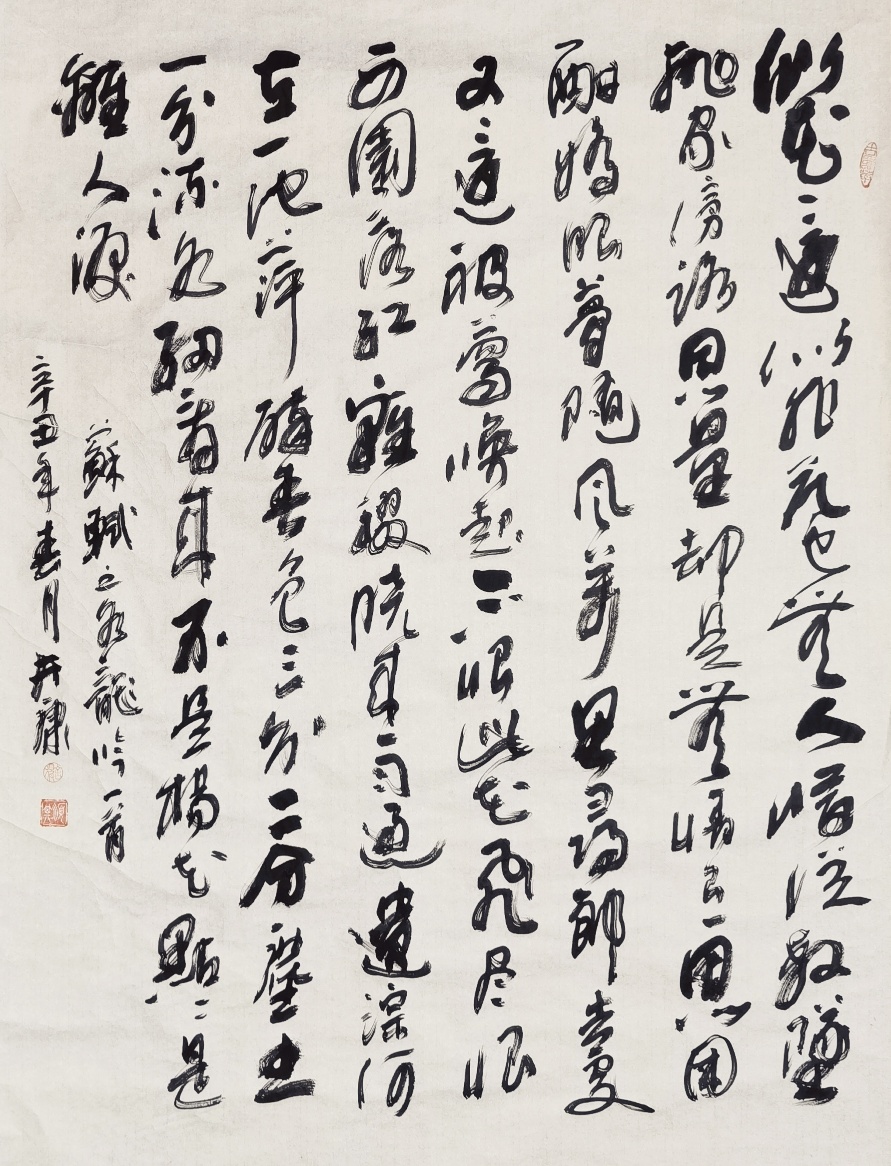 似花還似非花也無人惜從教墜
拋家傍路思量却是無情有思困
酣嬌眼夢隨風萬里尋郎去處
又還被鶯喚起不恨此花飛尽恨
西園落紅難綴曉來雨過遺踪何
在一池萍碎春色三分二分塵土
一分流水細看來不是楊花點〻是
離人淚
蘇軾之水龍吟一首
辛丑年春月